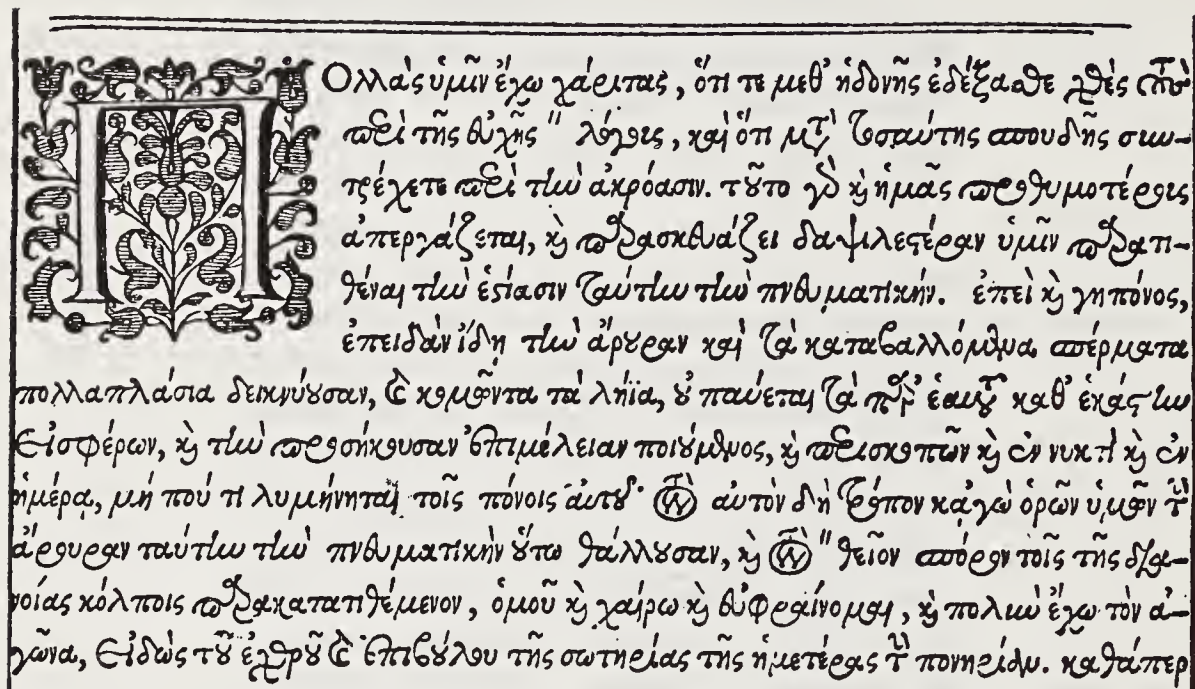 Πολλὰς ὑμῖν ἔχω χάριτας, ὅτι τε μεθ' ἡδονῆς ἐδέξασθε χθὲς τοὺς
περὶ τῆς εὐχῆς " λόγους, καὶ ὅτι μετὰ τοσαύτης σπουδῆς συν-
τρέχετε περὶ τὴν ἀκρόασιν. τοῦτο γὰρ καὶ ἡμᾶς προθυμοτέρους
ἀπεργάζεται, καὶ παρασκευάζει δαψιλεστέραν ὑμῖν παρατι-
θέναι τὴν ἑστίασιν ταύτην τὴν πνευματικήν. ἐπεὶ καὶ γηπόνος,
ἐπειδὰν ἴδῃ τὴν ἄρουραν καὶ τὰ καταβαλλόμενα σπέρματα
πολλαπλάσια δεικνύουσαν, καὶ κομῶντα τὰ λήϊα, οὐ παύεται τὰ παρ' ἑαυτοῦ καθ' ἑκάστην
εἰσφέρων, καὶ τὴν προσήκουσαν ἐπιμέλειαν ποιούμενος, καὶ περισκοπῶν καὶ ἐν νυκτὶ καὶ ἐν
ἡμέρᾳ, μή πού τι λυμήνηται τοῖς πόνοις αὐτοῦ· τὸν αὐτὸν δὴ τρόπον κἀγὼ ὁρῶν ὑμῶν τὴν
ἄρουραν ταύτην τὴν πνευματικὴν οὕτω θάλλουσαν, καὶ τὸν " θεῖον σπόρον τοῖς τῆς δια-
νοίας κόλποις παρακατατιθέμενον, ὁμοῦ καὶ χαίρω καὶ εὐφραίνομαι, καὶ πολὺν ἔχω τὸν ἀ-
γῶνα, εἰδὼς τοῦ ἐχθροῦ καὶ ἐπιβούλου τῆς σωτηρίας τῆς ἡμετέρας τὴν πονηρίαν. καθάπερ